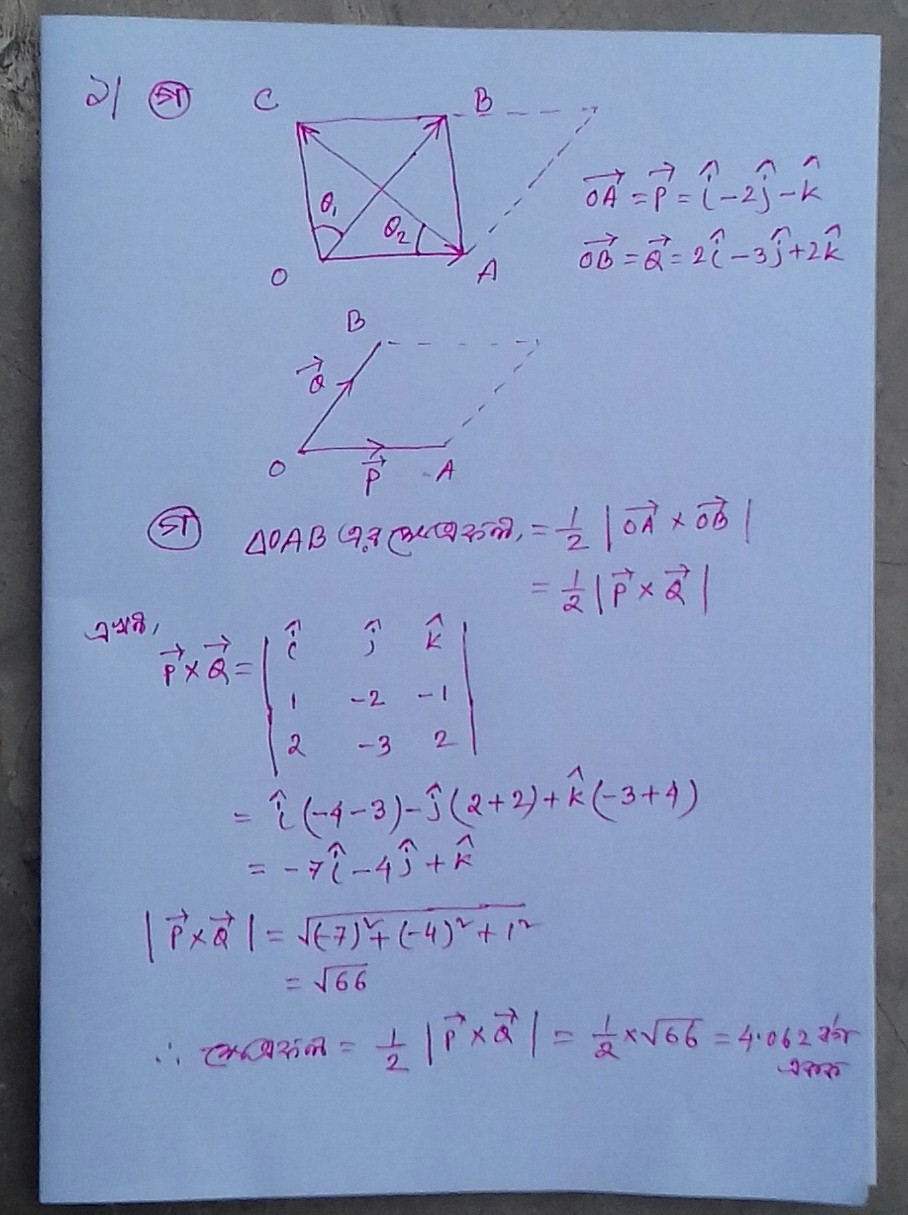 ২। গ
C B
θ₁ θ₂
O A
→OA = →P = î - 2ĵ - k̂
→OB = →Q = 2î - 3ĵ + 2k̂
B
→Q
O →P A
গ ΔOAB এর ক্ষেত্রফল, = 1/2 | →OA × →OB |
= 1/2 | →P × →Q |
এখন,
→P × →Q = | î ĵ k̂ |
| 1 -2 -1 |
| 2 -3 2 |
= î (-4-3) - ĵ (2+2) + k̂ (-3+4)
= -7î - 4ĵ + k̂
| →P × →Q | = √(-7)² + (-4)² + 1²
= √66
∴ ক্ষেত্রফল = 1/2 | →P × →Q | = 1/2 × √66 = 4.062 বর্গ
একক